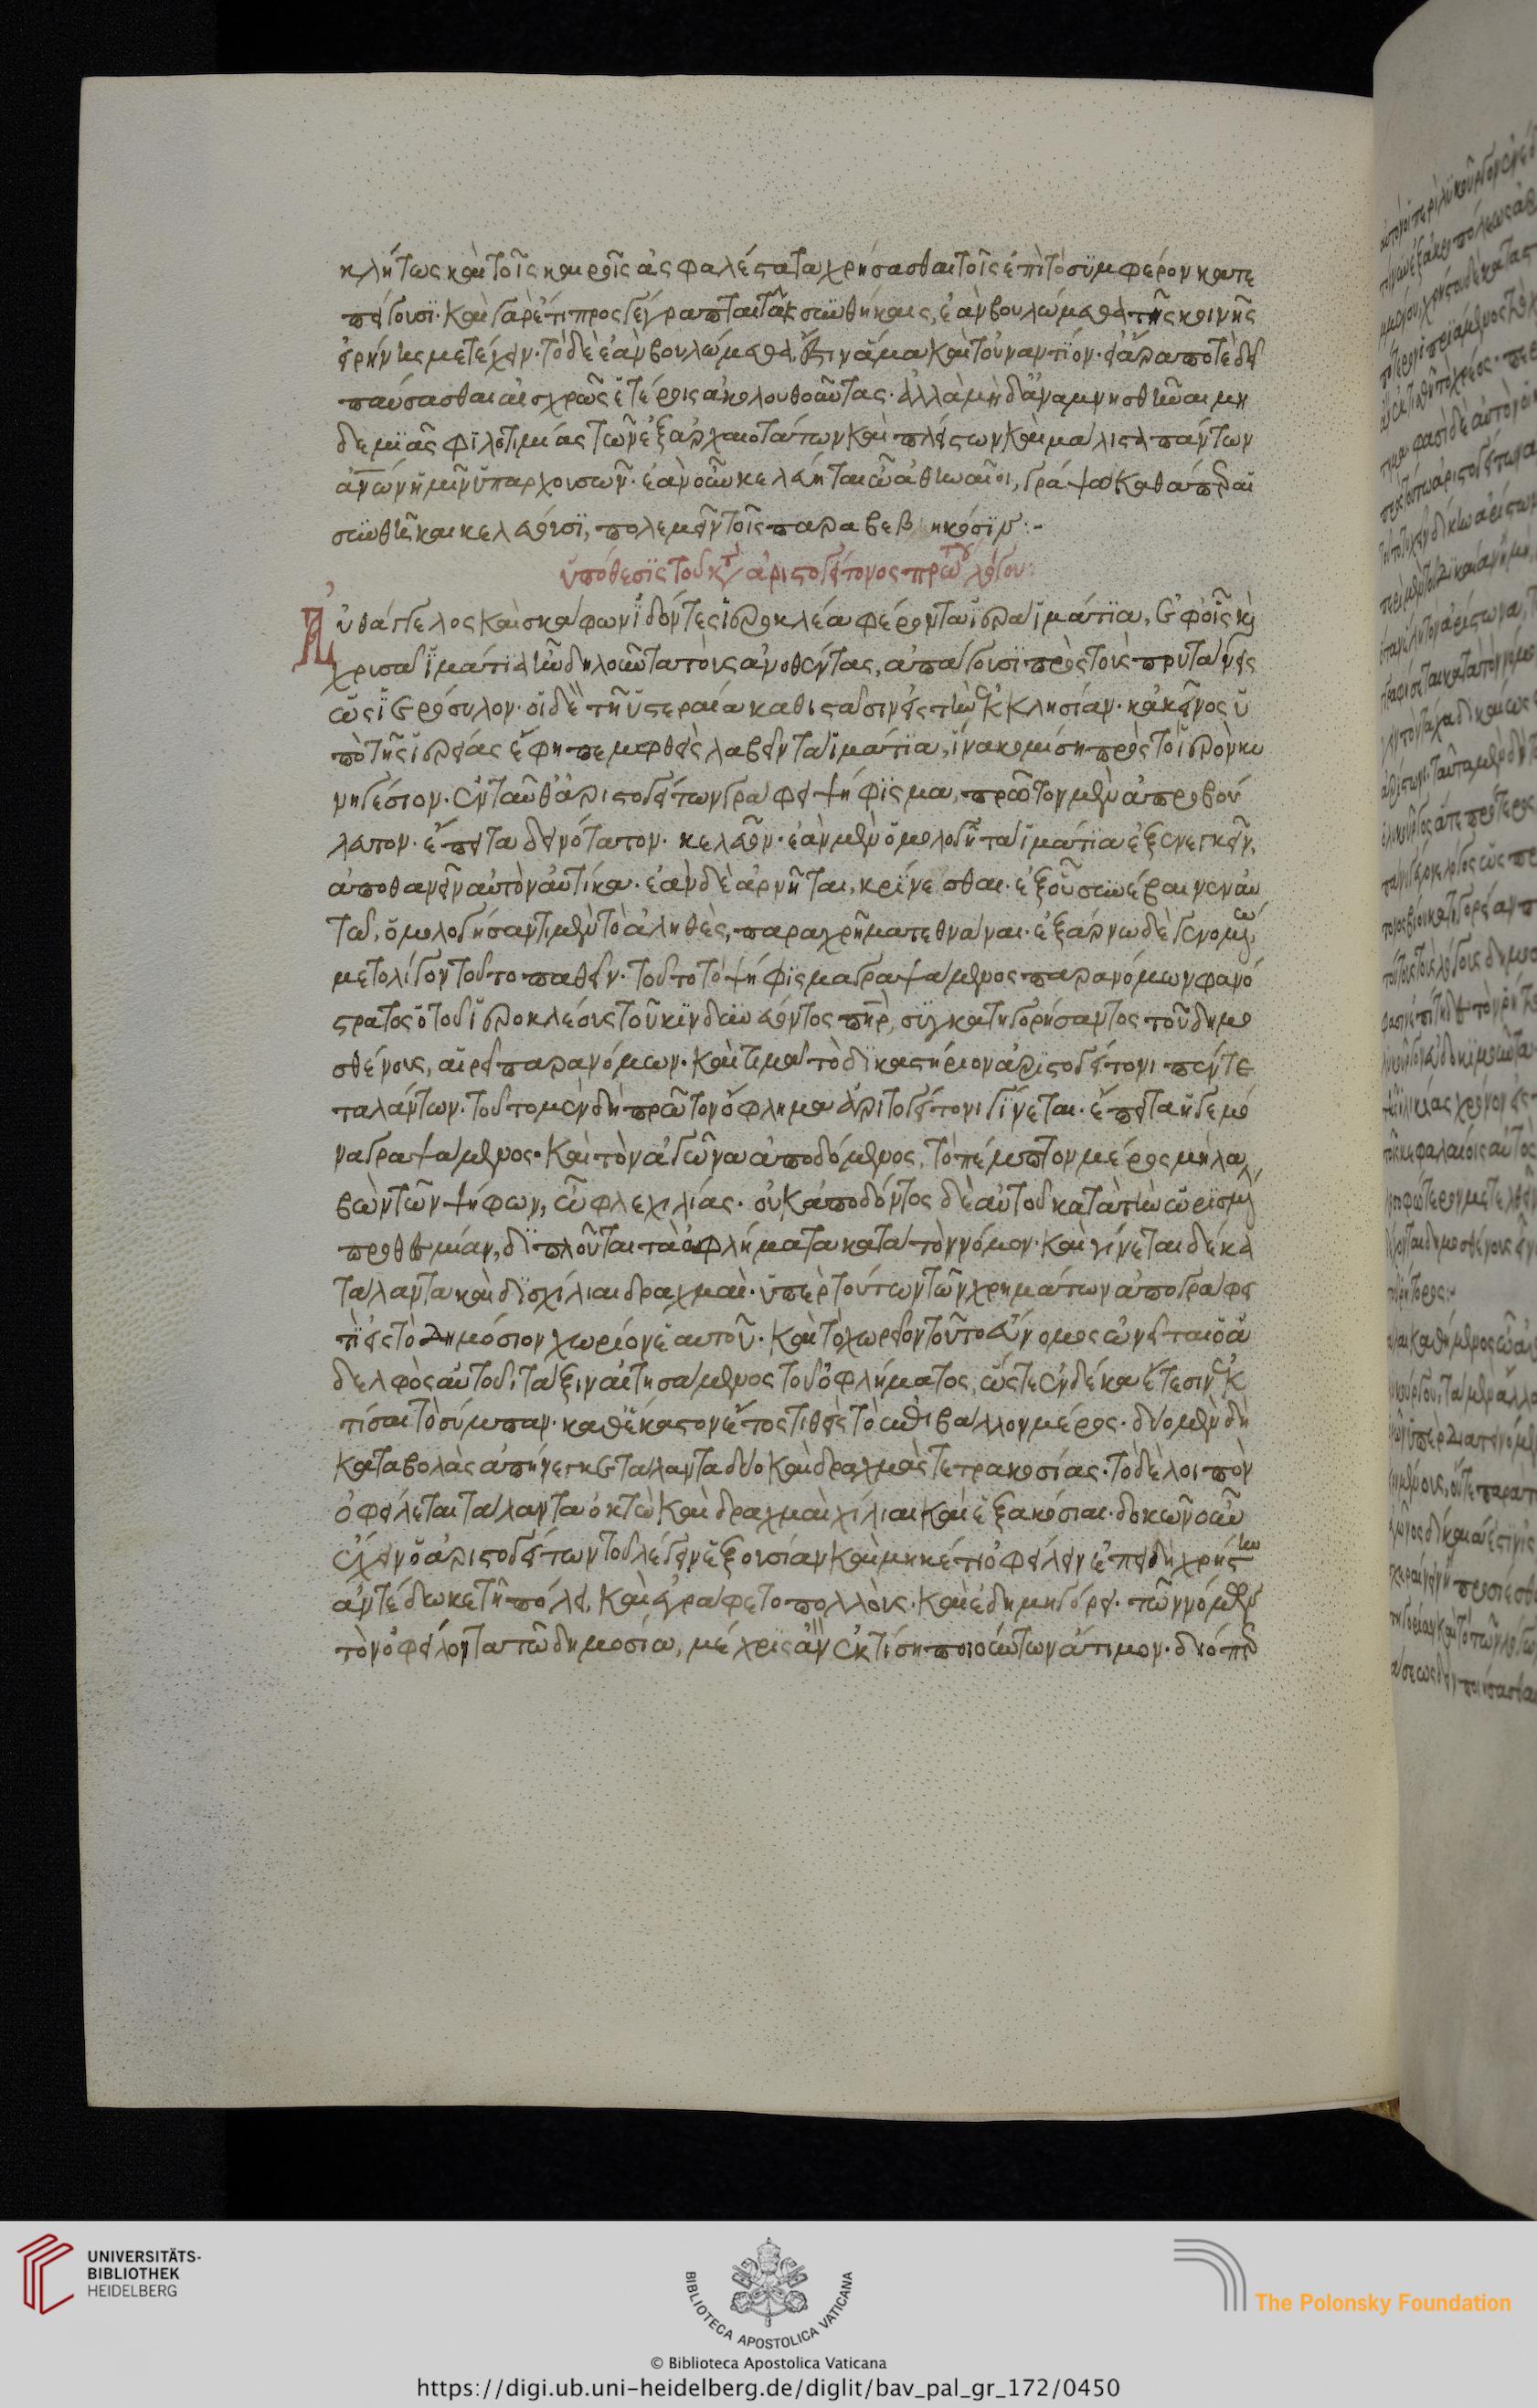 κλήτως καὶ τοῖς καιροῖς ἀσφαλέστατα χρήσασθαι τοῖς ἐπὶ τὸ συμφέρον κατε
πείγουσι. καὶ γὰρ ἔτι προσγέγραπται ταῖς συνθήκαις, ἐὰν βουλώμεθα τῆς κοινῆς
εἰρήνης μετέχειν. τὸ δὲ ἐὰν βουλώμεθα, ἔστιν ἅμα καὶ τοὐναντίον. εἰ ἄρα ποτὲ δεῖ
παύσασθαι αἰσχρῶς ἑτέροις ἀκολουθοῦντας. ἀλλὰ μὴ δ' ἀναμνησθῆναι μη
δεμιᾶς φιλοτιμίας τῶν ἐξ ἀρχαιοτάτων καὶ πλείστων καὶ μάλιστα πάντων
ἀνων ἡμῖν ὑπαρχουσῶν. ἐὰν οὖν κελεύητε ὦ ἀθηναῖοι, γράψω καθάπερ αἱ
συνθῆκαι κελεύουσι, πολεμεῖν τοῖς παραβεβηκόσιν :-
ὑπόθεσις τοῦ κτ ἀριστογείτονος πρώτου λόγου:
Πυθάγγελος καὶ σκάφων ἰδόντες ἱεροκλέα φέροντα ἱερὰ ἱμάτια, ἐφ' οἷς καὶ
χρυσᾶ ἱμάτια ἦν δηλοῦντα τοὺς ἀναθέντας, ἀπάγουσι πρὸς τοὺς πρυτάνεις
ὡς ἱερόσυλον. οἱ δὲ τῇ ὑστεραίᾳ καθιστᾶσιν εἰς τὴν ἐκκλησίαν. κἀκεῖνος ὑ
πὸ τῆς ἱερείας ἔφη πεμφθεὶς λαβεῖν τὰ ἱμάτια, ἵνα κομίσῃ πρὸς τὸ ἱερὸν κυ
νηγέσιον. ἐνταῦθ' ἀριστογείτων γράφει ψήφισμα, πρῶτον μὲν ἀπροβού
λευτον. ἔπειτα δεινότατον. κελεῦον. ἐὰν μὲν ὁμολογῇ τὰ ἱμάτια ἐξενεγκεῖν,
ἀποθανεῖν αὐτὸν αὐτίκα. ἐὰν δὲ ἀρνῆται, κρίνεσθαι. ἐξ οὗ συνέβαινεν αὐ
τῷ, ὁμολογήσαντι μὲν τὸ ἀληθὲς, παραχρῆμα τεθνάναι. ἐξάρνῳ δὲ γενομένῳ
μετ' ὀλίγον τοῦτο παθεῖν. τοῦτο τὸ ψήφισμα γραψάμενος παρανόμων φανό
στρατος ὁ τοῦ ἱεροκλέους τοῦ κινδυνεύοντος πηρ, συγκατηγορήσαντος τοῦ δημο
σθένους, αἱρεῖ παρανόμων. καὶ τιμᾷ τὸ δικαστήριον ἀριστογείτονι πέντε
ταλάντων. τοῦτο μὲν δὴ πρῶτον ὄφλημα ἀριτογείτονι γίνεται. ἔπειτα ἡγεμό
να γραψάμενος. καὶ τὸν ἀγῶνα ἀποδόμενος, τὸ πέμπτον μέρος μὴ λα
βὼν τῶν ψήφων, ὦφλε χιλίας. οὐκ ἀποδόντος δὲ αὐτοῦ κατὰ τὴν ὡρισμένην
προθεσμίαν, διπλοῦται τὰ ὀφλήματα κατὰ τὸν νόμον. καὶ γίνεται δέκα
τάλαντα καὶ δισχίλιαι δραχμαί. ὑπὲρ τούτων τῶν χρημάτων ἀπογράφε
ται εἰς τὸ δημόσιον χωρίον ἑαυτοῦ. καὶ τὸ χωρίον τοῦτο εὔνομος ὠνεῖται ὁ ἀ
δελφὸς αὐτοῦ, τάξιν αἰτησάμενος τοῦ ὀφλήματος, ὥστε ἐν δέκα ἔτεσιν ἐκ
τίσαι τὸ σύμπαν. καθ' ἕκαστον ἔτος τιθεὶς τὸ ἐπιβάλλον μέρος. δύο μὲν δὴ
καταβολὰς ἀπήνεγκε τάλαντα δύο καὶ δραχμὰς τετρακοσίας. τὸ δὲ λοιπὸν
ὀφείλεται τάλαντα ὀκτὼ καὶ δραχμαὶ χίλιαι καὶ ἑξακόσιαι. δοκῶν οὖν
ἔχειν ὁ ἀριστογείτων τοῦ λέγειν ἐξουσίαν καὶ μηκέτι ὀφείλειν ἐπειδὴ χρήστην
ἀντέδωκε τῇ πόλει, καὶ ἐγράφετο πολλοὺς. καὶ ἐδημηγόρει. τῶν νόμων
τὸν ὀφείλοντα τῷ δημοσίῳ, μέχρις ἂν ἐκτίσῃ ποιούντων ἄτιμον. διόπερ
UNIVERSITÄTS-
BIBLIOTHEK
HEIDELBERG
BIBLIOTECA APOSTOLICA VATICANA
The Polonsky Foundation
© Biblioteca Apostolica Vaticana
https://digi.ub.uni-heidelberg.de/diglit/bav_pal_gr_172/0450